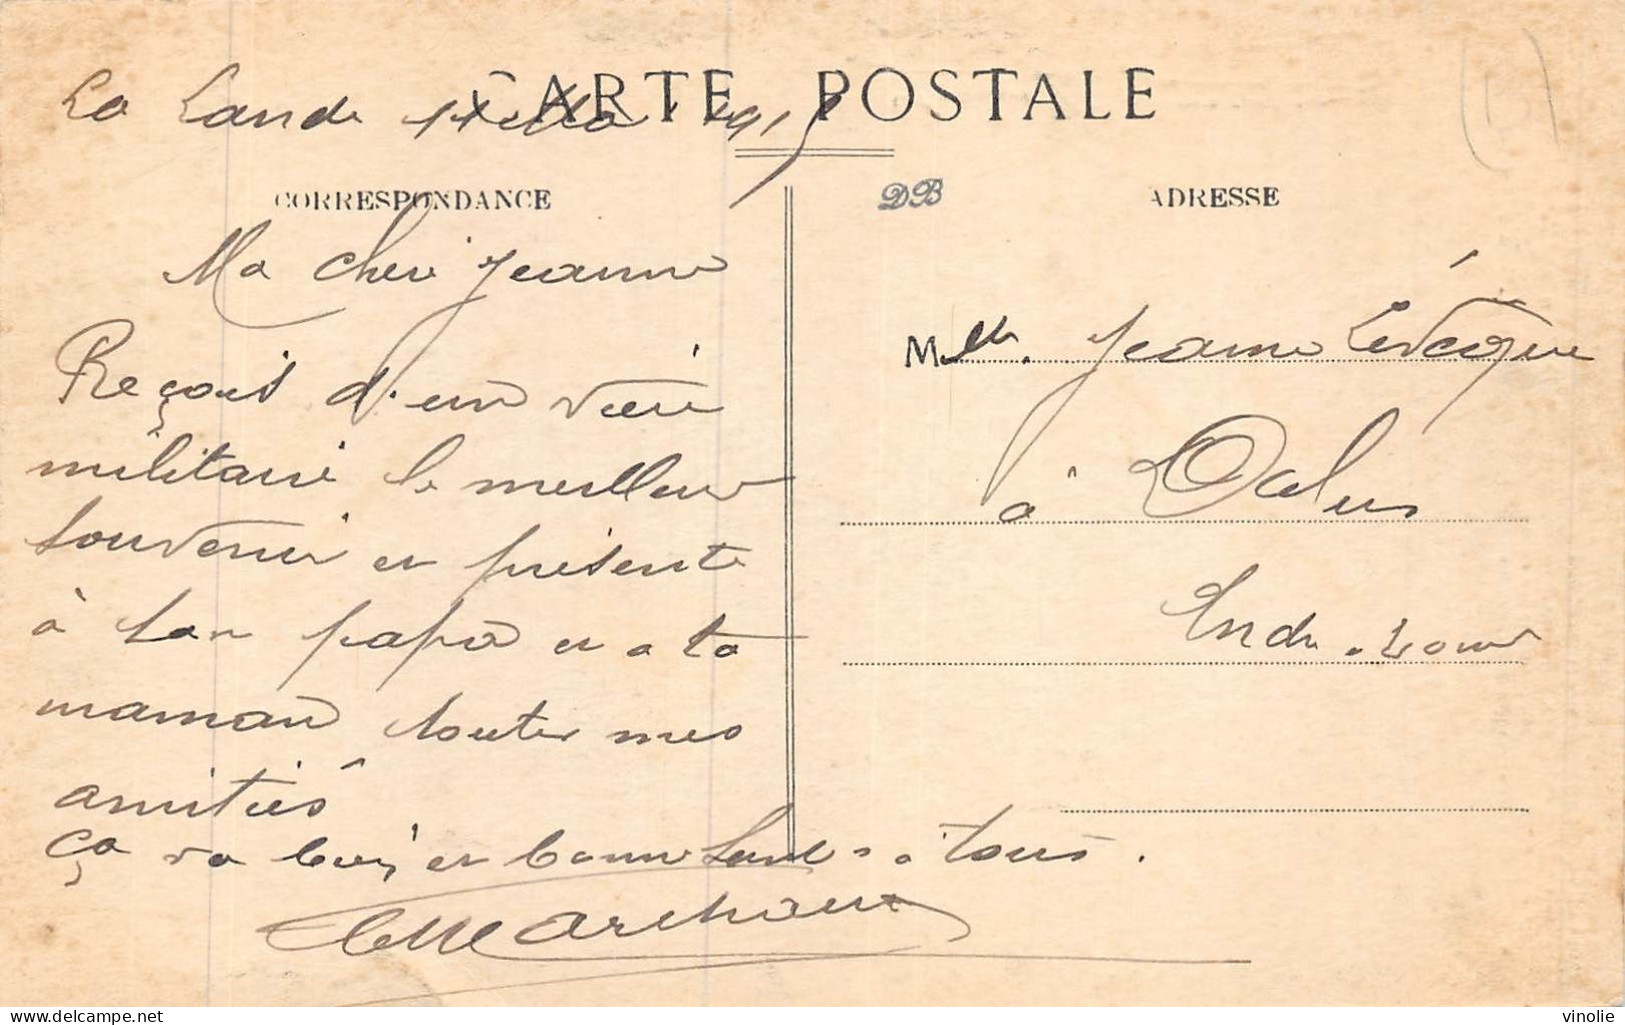 CARTE POSTALE
La Lande 1915
CORRESPONDANCE
DB
ADRESSE
Ma cher Jeanne
Reçois d'un vieu
militaire le meilleur
souvenir et présente
à ton papa et a ta
maman toutes mes
amitiés
Ça va bien et bonne santé a tous.
Marchand
Melle. Jeanne Levêque
à
Indre. Loire
delcampe.net
vinolie